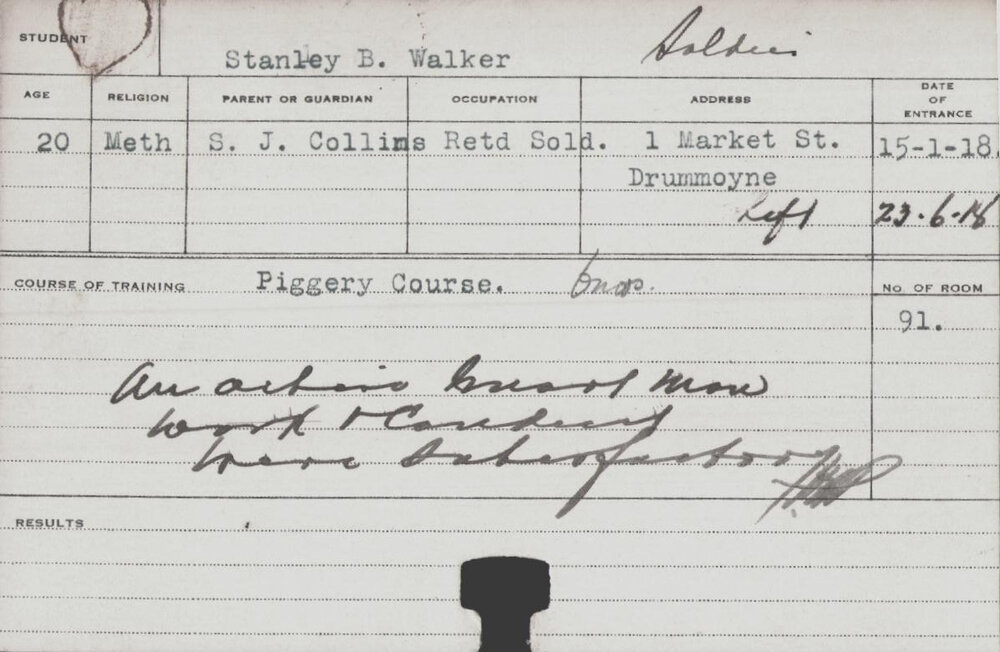 STUDENT Stanley B. Walker Soldier
AGE RELIGION PARENT OR GUARDIAN OCCUPATION ADDRESS DATE OF ENTRANCE
20 Meth S. J. Collins Retd Sold. 1 Market St. 15-1-18.
Drummoyne
Left 23.6.18
COURSE OF TRAINING Piggery Course. 6mos. No. OF ROOM
91.
An active smart man
work & Conduct
were Satisfactory
RESULTS